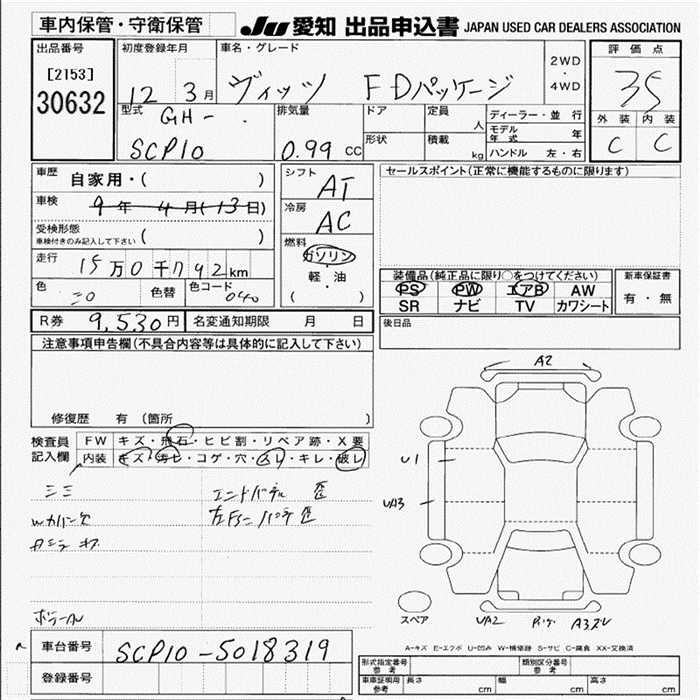 車内保管・守衛保管
JU 愛知 出品申込書 JAPAN USED CAR DEALERS ASSOCIATION
出品番号
[2153]
30632
初度登録年月
12 3月
車名・グレード
ヴィッツ FDパッケージ
2WD
・
4WD
評価点
35
外装 内装
C C
型式
GH-
SCP10
排気量
0.99 CC
ドア
形状
定員
人
積載
kg
ディーラー・並行
モデル年式 年
ハンドル 左・右
車歴 自家用・( )
車検 9年4月(13日)
受検形態
車検付きのみ記入して下さい ( )
走行 15万0千792km
色 色替 色コード 040
シフト
AT
冷房
AC
燃料
ガソリン
軽・油
( )
セールスポイント(正常に機能するものに限ります)
装備品(純正品に限り○をつけてください)
PS PW エアB AW
SR ナビ TV カワシート
新車保証書
有・無
R券 9,530円 名変通知期限 月 日
後日品
注意事項申告欄(不具合内容等は具体的に記入して下さい)
修復歴 有 (箇所 )
検査員記入欄
FW キズ・飛石・ヒビ割・リペア跡・X要
内装 キズ・汚レ・コゲ・穴・スレ・キレ・破レ
エンドパネル 歪
A2
U1
UA3
スペア
UA2
車台番号 SCP10-5018319
登録番号
A-キズ E-エクボ U-凹み W-補修跡 S-サビ C-腐食 XX-交換済
形式指定番号 参考
類別区分番号 参考
車車証明用 参考
長さ cm 幅 cm 高さ cm